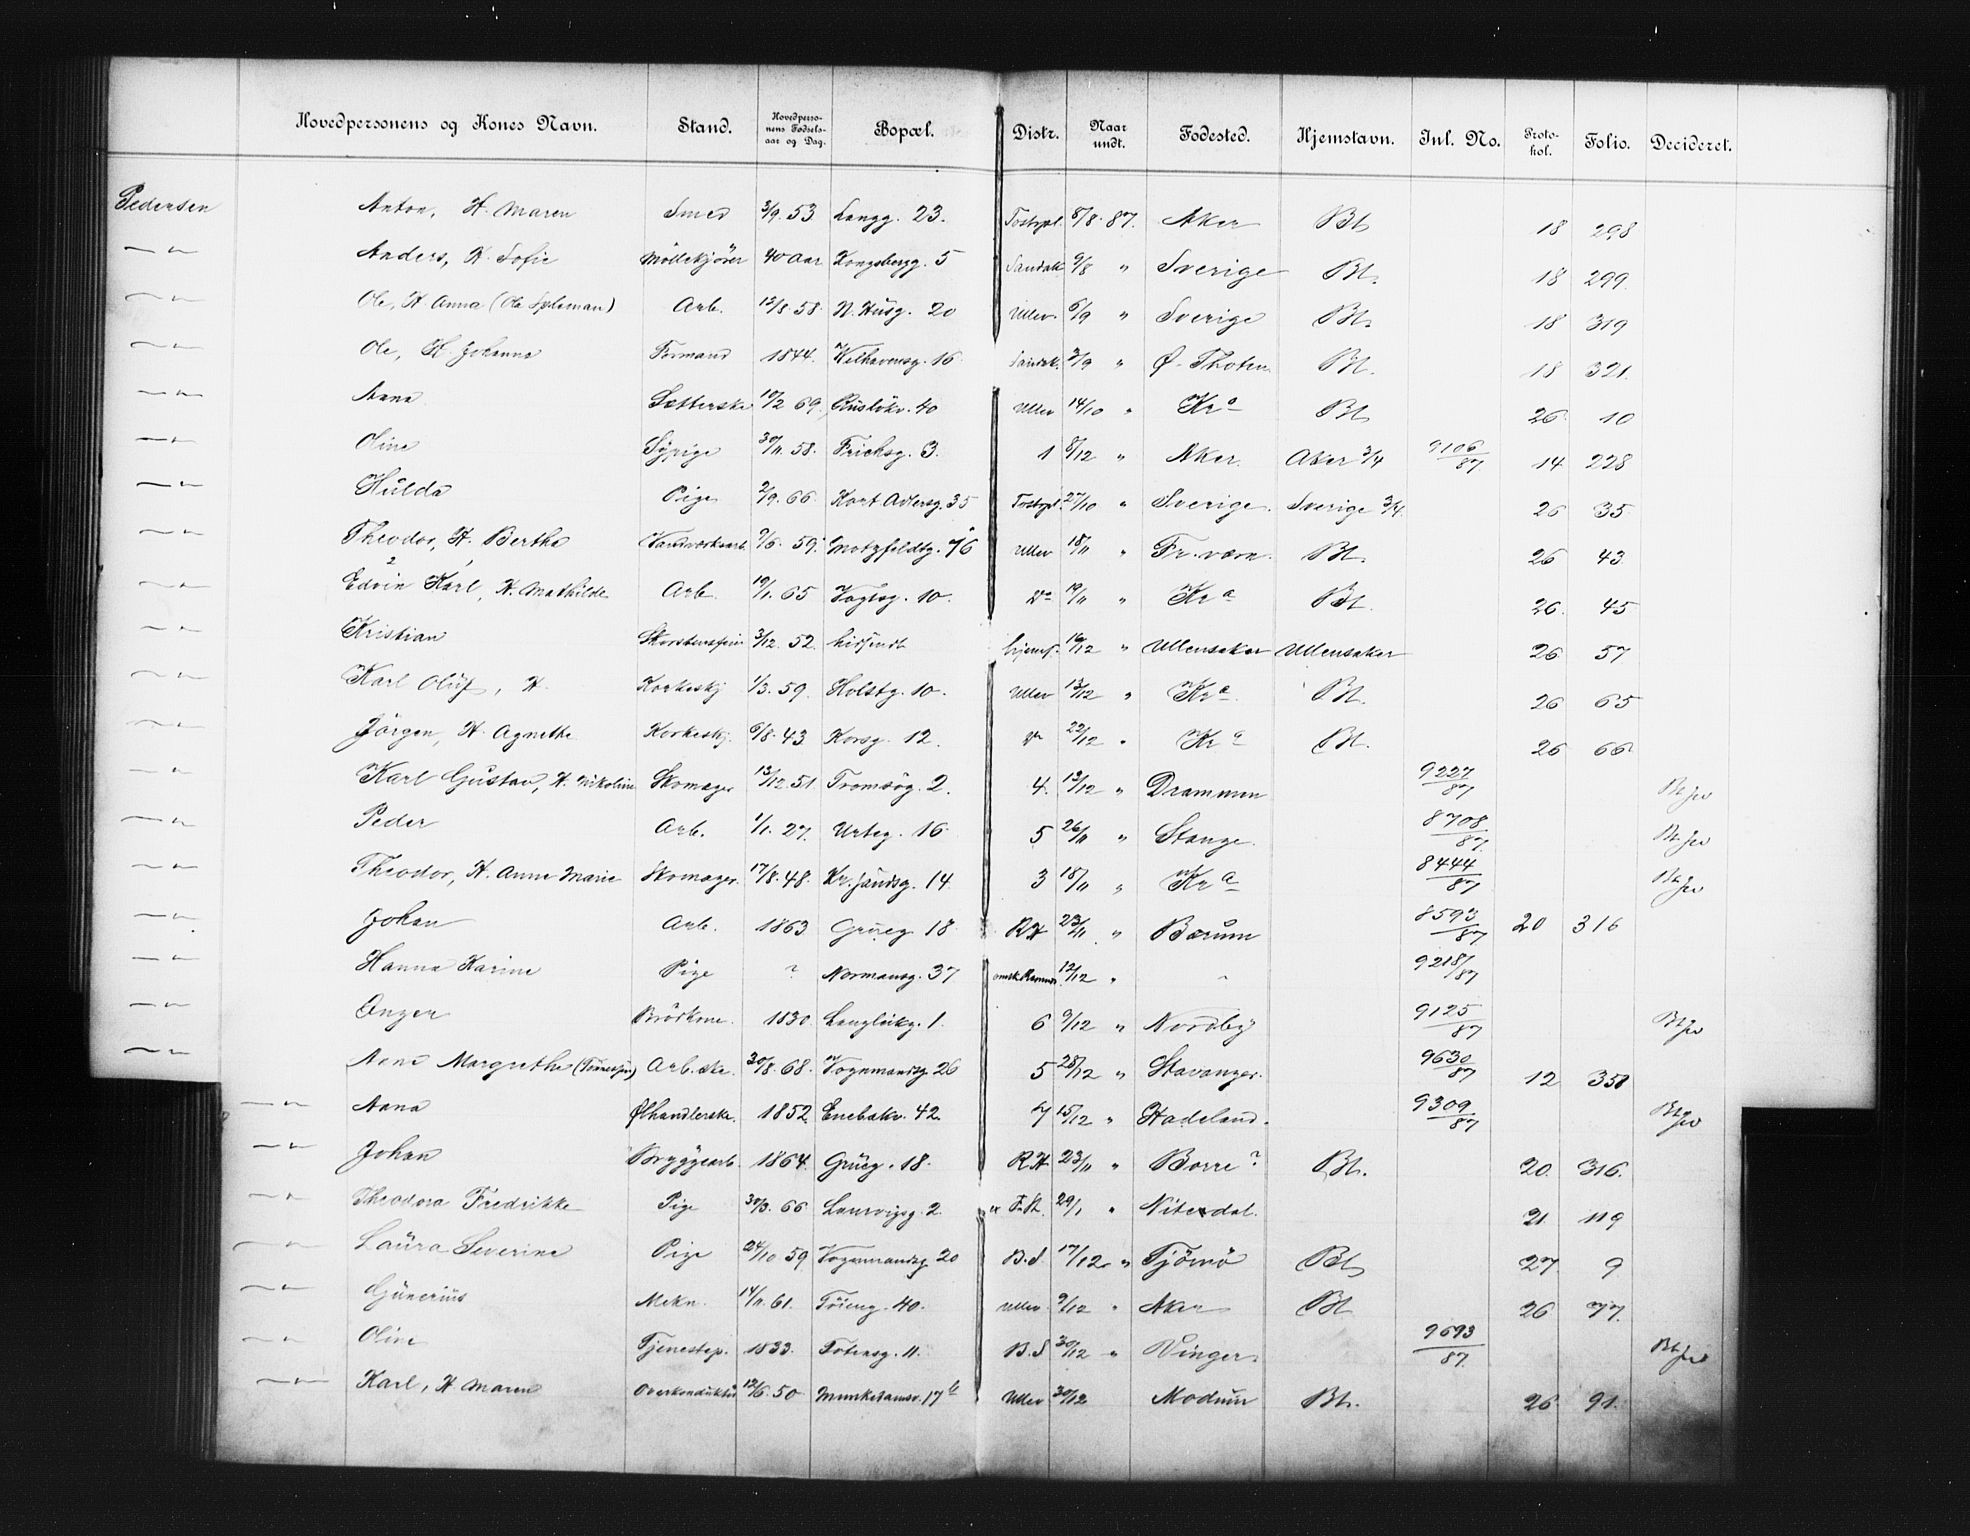 Hovedpersonens og Kones Navn. Stand. Hovedperso-nens Fødsels-aar og Dag. Bopæl. Distr. Naar undt. Fødested. Hjemstavn. Inl. No. Proto-kol. Folio. Decideret.
Pedersen Anton, H. Maren Smed 3/9. 53 Langg. 23. 8/8. 87. Aker Bt. 18 298
— " — Anders, H. Sofie Møllekjører 40 Aar Kongsbergg. 5 9/8 " Sverige Bt. 18 299.
— " — Ole, H. Anna (Ole Spleman) Arb. 12/8. 58. N. Husg. 20 Ullev. 6/9 " Sverige Bt. 18 319
— " — Ole, H. Johanna Formand 1844. Welhavensg. 16. 2/9 " Ø. Thoten Bt. 18 321.
— " — Anna Sætterske 10/2 69. Rusløkv. 40 Ullev 14/10 " Kra Bt. 26. 10
— " — Oline Sypige 30/11. 58. Frichsg. 3. 1 8/12 " Aker. Aker 3/4 9106/87 14 228
— " — Hulda Pige 2/9. 66. Kort Adlersg. 35 27/10 " Sverige. Sverige 3/4. 26 35.
— " — Theodor, H. Bertha 9/6. 59. Motzfeldtg. 16 Ullev 18/11 " Fr. værn. Bt. 26 43.
— " — Edvin Karl, H. Mathilde Arb. 10/1. 65 Vogtsg. 10. Do 19/11 " Kra Bt. 26. 45
— " — Kristian 3/12. 52. hidsendt hjemf. 16/12 " Ullensaker Ullensaker 26. 57
— " — Karl Oluf, H. Korkeskj 1/3. 59. Holstg. 10. Ullev 13/12 " Kra. Bt. 26 65
— " — Jørgen, H. Agnethe Korkeskj. 6/8. 43 Korsg. 12. Do 22/12 " Kra Bt. 26 66.
— " — Karl Gustav, H. Nikoline Skomager 13/12. 51. Tromsøg. 2. 4. 13/12 " Drammen 9227/87
— " — Peder Arb. 1/1. 27. Urteg. 16. 5 26/11 " Stange. 8708/87.
— " — Theodor, H. Anne Marie Skomager. 17/8. 48. Kr. sandsg. 14. 3 18/11 " Kra 8444/87
— " — Johan Arb. 1863 Grüeg. 18. R.H 23/11 " Bærum 8593/87 20 316
— " — Hanna Karine Pige ? Normansg. 37. 12/12 " 9218/87
— " — Anger Brødkone. 1830. Langleikg. 1. 6 9/12 " Nordby 9125/87
— " — Anne Margrethe Arb.ske. 30/8. 68. Vognmandsg 26 5 28/12 " Stavanger. 9630/87 12 358
— " — Anna Ølhandlerske. 1852. Enebakv. 42. 7 15/12 " Hadeland. 9309/87
— " — Johan Bryggearb. 1864. Grüeg. 18. R.H 23/11 " Borre? Bt. 20. 316.
— " — Theodora Fredrikke Pige 30/3. 66 Laurvigsg. 2. 29/1 " Nitedal. 21. 119
— " — Laura Severine Pige 24/10 59. Vognmandsg 20 B.S. 17/12 " Tjømø Bt. 27. 9
— " — Gunerius Mekn. 14/11. 61. Tøieng. 40. Ullev 9/12 " Aker Bt 26 77.
— " — Oline Tjenestep. 1833. Totensg. 11. B.S 30/12 " Vinger. 9693/87.
— " — Karl, H. Maren Overkonduktør 12/6. 50. Munkedamsv. 17 b Ullev 30/12 Modum Bt. 26 91.